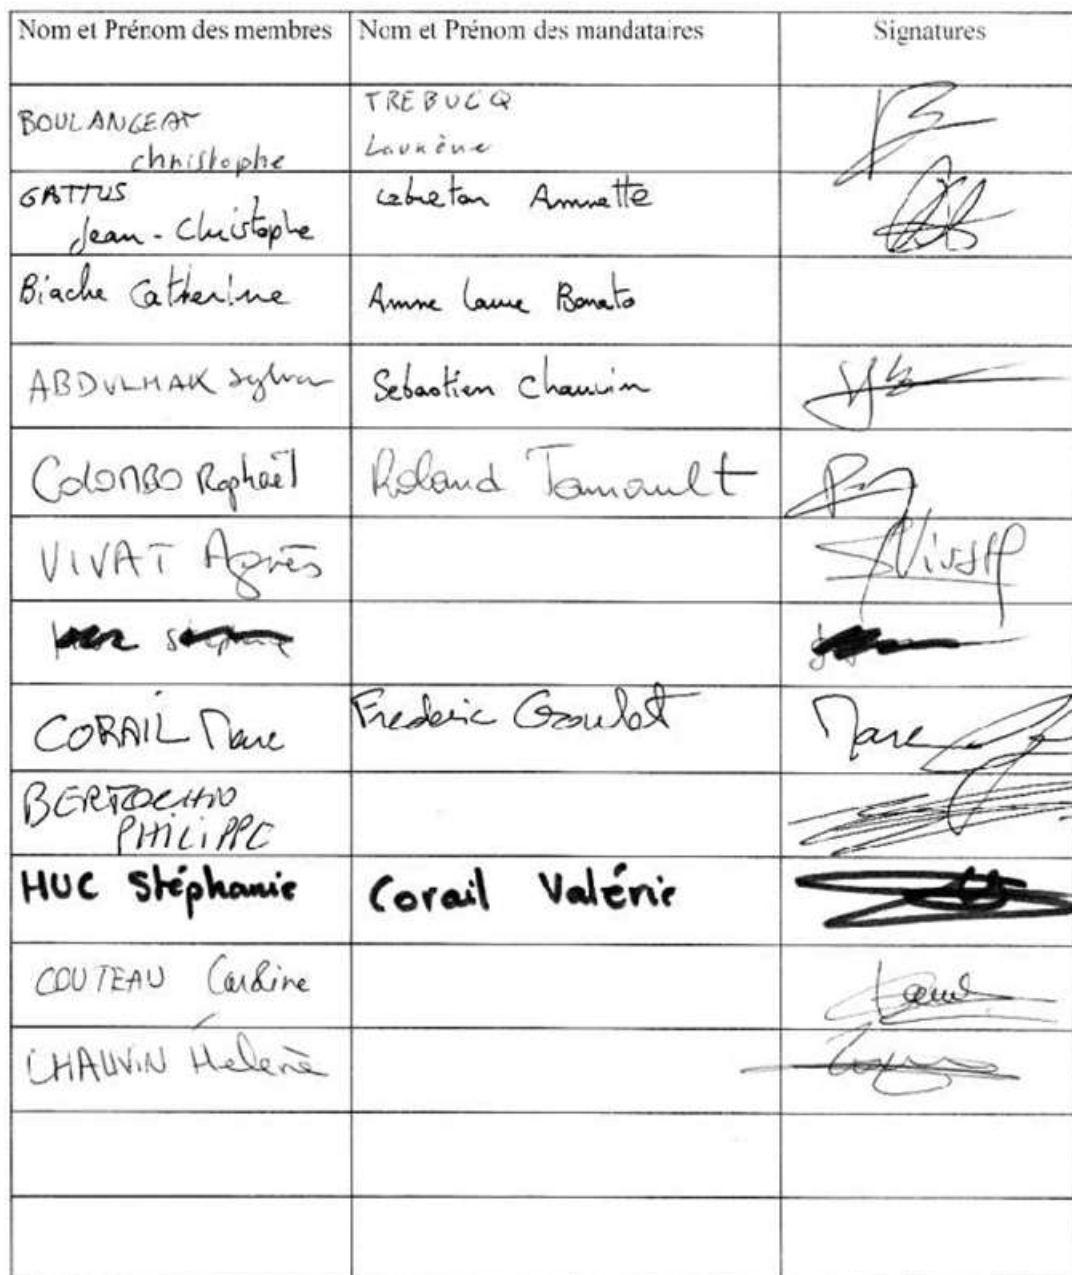 Nom et Prénom des membres Nom et Prénom des mandataires Signatures
BOULANGEAT TREBUCQ
christophe Laurène
GATTUS Lebreton Annette
Jean-Christophe
Biache Catherine Anne Laure Bonato
ABDULHAK Sylvain Sebastien Chauvin
COLOMBO Raphaël Roland Tamault
VIVAT Agnès
CORAIL Marc Frederic Goulet Marc
PHILIPPE
HUC Stéphanie Corail Valérie
COUTEAU Cardine
CHAUVIN Hélène